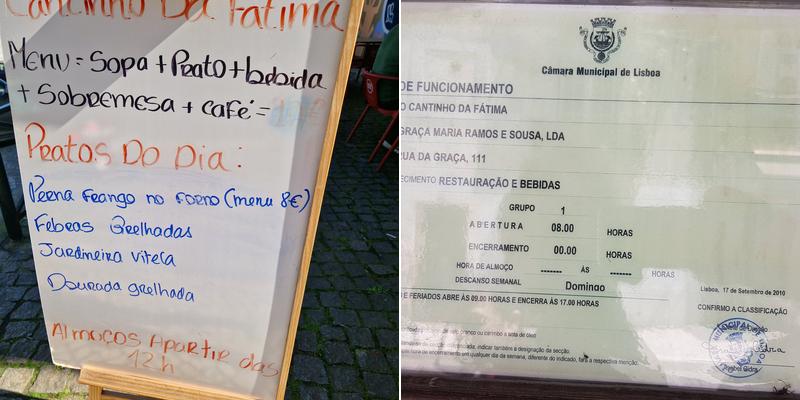 Cantinho Da Fatima
Menu = Sopa + Prato + bebida
+ Sobremesa + café =
Pratos Do Dia :
Perna Frango no forno (menu 8€)
Febras Grelhadas
Jardineira vitela
Dourada grelhada
Almoços Apartir das
12h
Câmara Municipal de Lisboa
DE FUNCIONAMENTO
O CANTINHO DA FÁTIMA
GRAÇA MARIA RAMOS E SOUSA, LDA
RUA DA GRAÇA, 111
ECIMENTO RESTAURAÇÃO E BEBIDAS
GRUPO 1
ABERTURA 08.00 HORAS
ENCERRAMENTO 00.00 HORAS
HORA DE ALMOÇO ------- ÀS ------- HORAS
DESCANSO SEMANAL Domingo
Lisboa, 17 de Setembro de 2010
O E FERIADOS ABRE ÀS 09.00 HORAS E ENCERRA ÀS 17.00 HORAS
CONFIRMO A CLASSIFICAÇÃO
branco ou carimbo a tinta de óleo
indicar também a designação da secção.
hora de encerramento em qualquer dia da semana, diferente do indicado, fará a respectiva menção.
Isabel Cidra